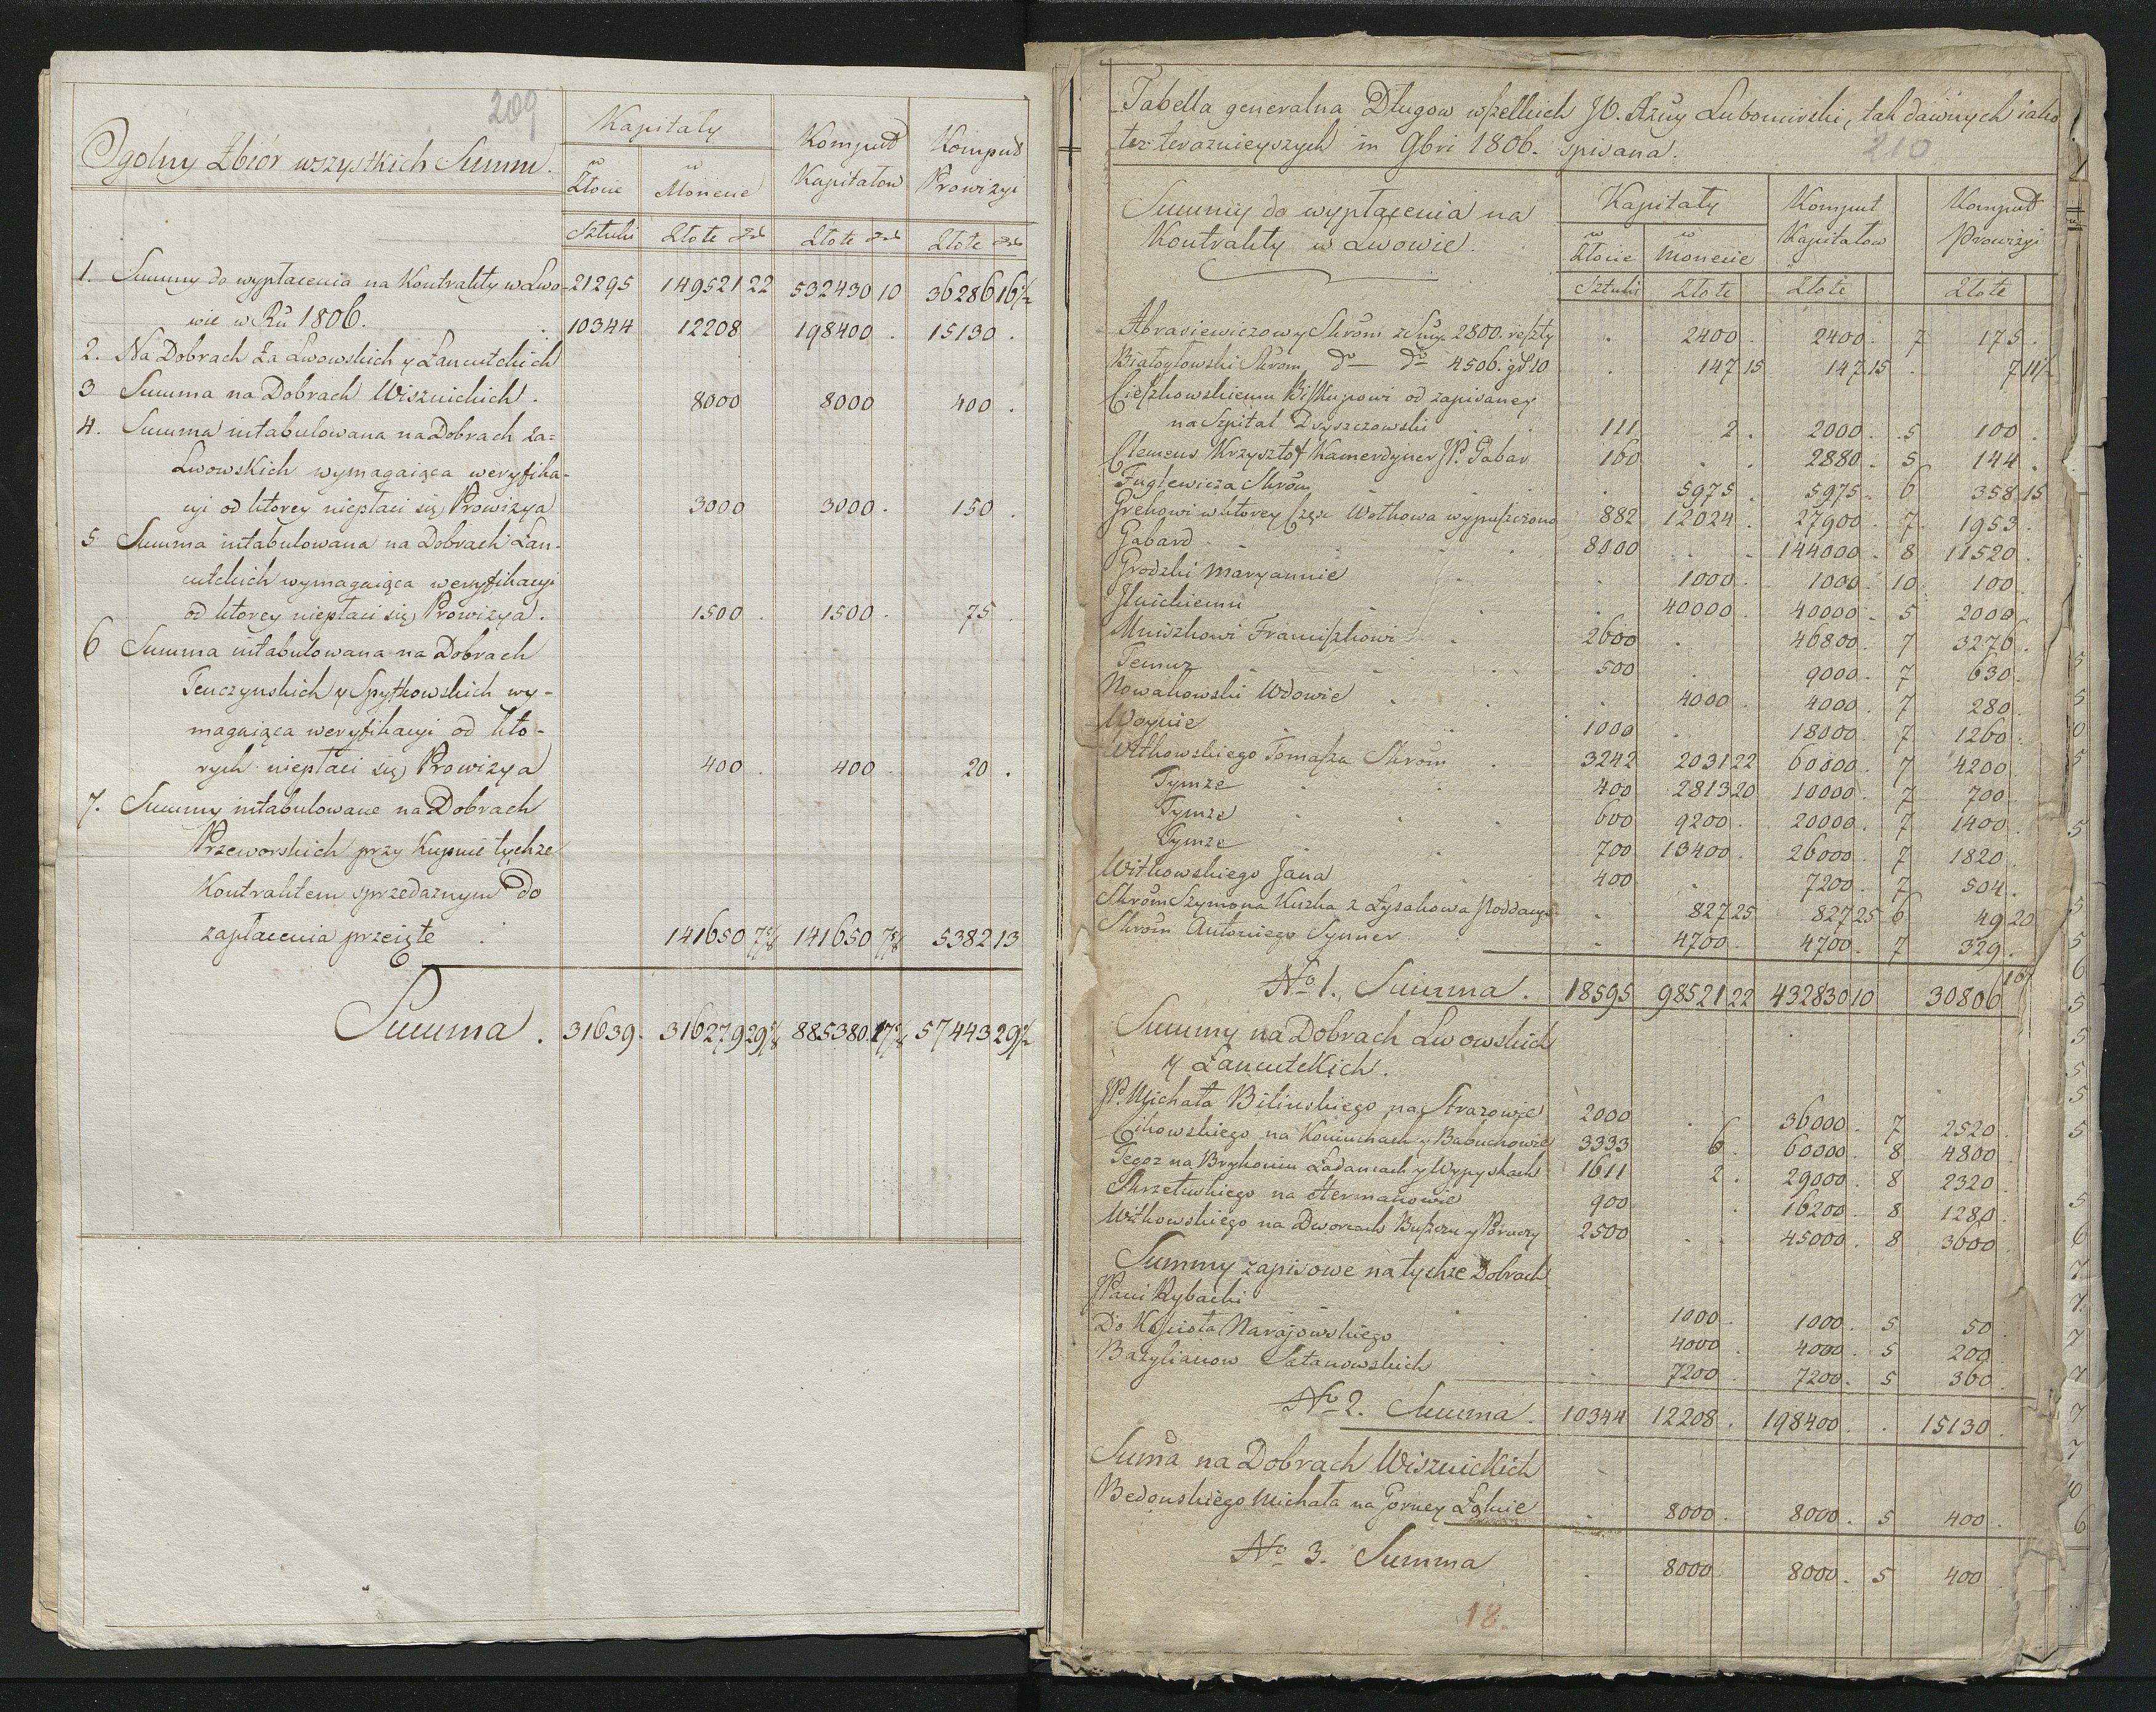 209
Ogolny Zbiór wszystkich Summ.
Kapitały
Komput Kapitałow
Komput Prowizyi
w Złocie
w Monecie
Sztuki Złote Złote Złote
1. Summy do wypłacenia na Kontrakty w Lwo- 21295 149521 22 532430 10 36286 16 1/2
wie w Ru 1806.
2. Na Dobrach Za Lwowskich y Łancutckich 10344 12208 198400 . 15130 .
3 Summa na Dobrach Wisznickich . 8000 8000 400 .
4. Summa intabulowana na Dobrach za=
Lwowskich wymagaiąca weryfika-
cyi od ktorey niepłaci się Prowizya 3000 3000 . 150 .
5 Summa intabulowana na Dobrach Łan-
cutckich wymagaiąca weryfikacyi
od ktorey niepłaci się Prowizya . 1500 . 1500 . 75 .
6 Summa intabulowana na Dobrach
Tenczynskich y Spytkowskich wy-
magaiąca weryfikacyi od kto-
rych niepłaci się Prowizya 400 . 400 . 20 .
7. Summy intabulowane na Dobrach
Przeworskich przy Kupnie tychże
Kontraktem sprzedażnym do
zapłacenia przeięte 141650 7 141650 7 5382 13
Summa . 31639 . 316279 29 885380 . 17 57443 29 1/2
Tabella generalna Długow wszelkich JO. Xżny Lubomirski, tak dawnych iako
też teraznieyszych in 9bri 1806. spisana.
210
Summy do wypłacenia na
Kontrakty w Lwowie.
Kapitały
Komput Kapitałow
Komput Prowizyi
w Złocie
w Monecie
Sztuki Złote Złote Złote
Abrasiewiczowy Skrom z Sumy 2800. reszty . 2400 . 2400 . 7 175 .
Białogłowski Skrom do do 4506. gr 10 . 147 15 147 15 . 7 11 1/2
Cieszkowskiemu Biskupowi od zapisaney
na Szpital Dryszczowski . . 111 2 . 2000 . 5 100 .
Clemens Krzysztof Kamerdyner JP. Gabar 160 . . 2880 . 5 144 .
Fuglewicza Skrom . . 5975 . 5975 . 6 358 15
Grekowi w ktorey Częsc Wołkowa wypuszczono 882 12024 . 27900 . 7 . 1953 .
Gabard . . . 8000 . . 144000 . 8 11520 .
Grodzki Maryannie . . 1000 . 1000 . 10 . 100 .
Ilnickiemu . . . 40000 . 40000 . 5 2000 .
Mniszkowi Franciszkowi . 2600 . 46800 . 7 3276 .
Temuz . . . 500 . 9000 . 7 630 .
Nowakowski Wdowie . . . 4000 . 4000 . 7 280 .
Woynie . . 1000 . 18000 . 7 1260 .
Witkowskiego Tomasza Skrom . 3242 2031 22 60000 . 7 4200 .
Tymże . . 400 2813 20 10000 . 7 700 .
Tymże . . . 600 9200 . 20000 . 7 1400 .
Tymże . 700 13400 . 26000 . 7 1820 .
Witkowskiego Jana . 400 . 7200 . 7 504 .
Skrom Szymona Kuzka z Łysakowa Poddany . 827 25 827 25 6 49 20
Skrom Antoniego Synner . 4700 . 4700 . 7 329 .
No 1. Summa . 18595 98521 22 432830 10 30806 16 1/2
Summy na Dobrach Lwowskich
y Łancutckich .
JP. Michała Bilinskiego na Strazowie 2000 . 36000 . 7 2520 .
Cikowskiego na Koniuchach y Babuchowie 3333 6 . 60000 . 8 4800 .
Tegoz na Brykoniu Ładancach y Wypyskach 1611 2 . 29000 . 8 2320 .
Skrzetuskiego na Hermanowie 900 . 16200 . 8 1280 .
Witkowskiego na Dworcach Buszczu y Poruczy 2500 . . 45000 . 8 3600 .
Summy zapisowe na tychże Dobrach
JPani Rybacki . . 1000 . 1000 . 5 50 .
Do Kościoła Narajowskiego . . 4000 . 4000 . 5 200
Bazylianow Satanowskich . 7200 . 7200 . 5 360 .
No 2. Summa . 10344 12208 . 198400 . . 15130 .
Suma na Dobrach Wisznickich
Bedonskiego Michała na Gorney Łąkcie . 8000 . 8000 . 5 400 .
No 3. Summa . 8000 8000 . 5 400
18.